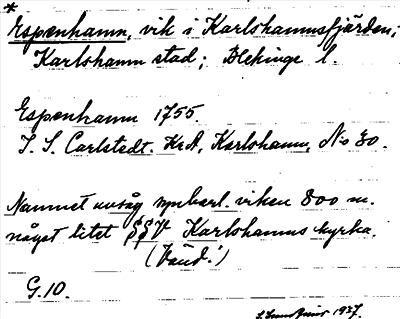 *
Espenhamn, vik i Karlshamnsfjärden;
Karlshamn stad; Blekinge l.
Espenhamn 1755.
J. S. Carlstedt. KrA, Karlshamn, No 30.
Namnet avsåg synbarl. viken 800 m.
något litet Karlshamns kyrka.
(Vänd!)
G.10.
1927.